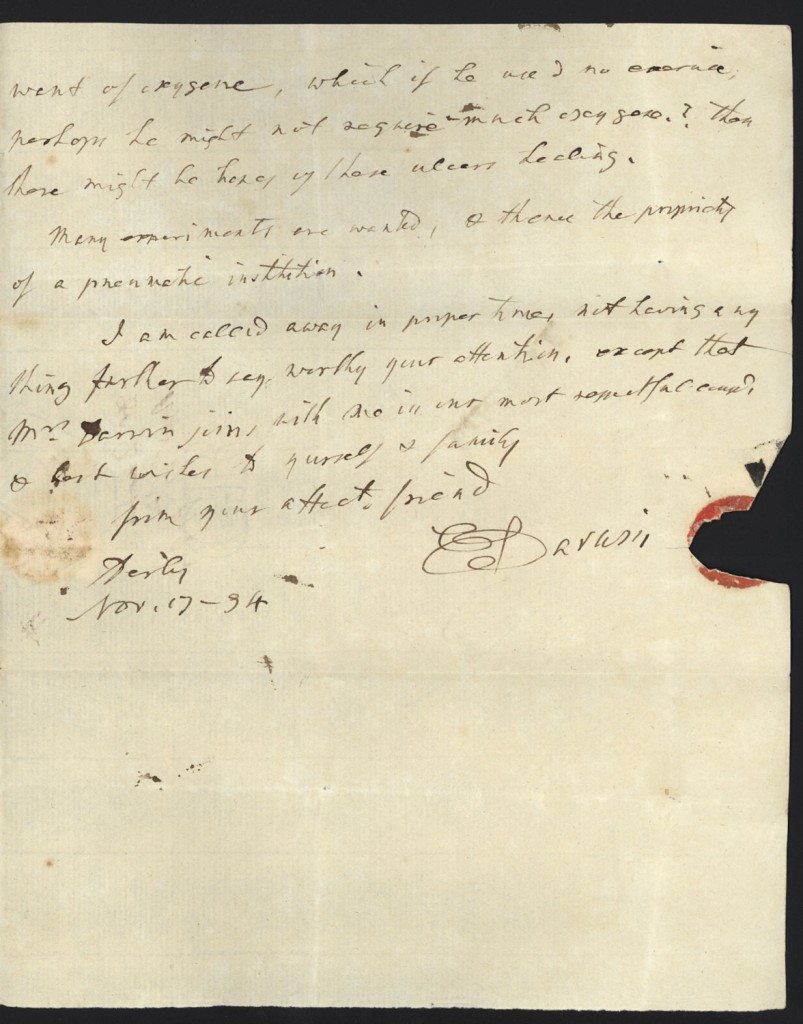 want of oxygene, which if he used no exercise,
perhaps he might not require much oxygene.? then
there might be hopes of these ulcers healing.
Many experiments are wanted, & thence the propriety
of a pneumatic institution.
I am called away in proper time, not having any
thing further to say, worthy your attention, except that
Mrs. Darwin joins with me in our most respectful
& best wishes to yourself & family
from your affect. friend
E Darwin
Derby
Nov. 17-94